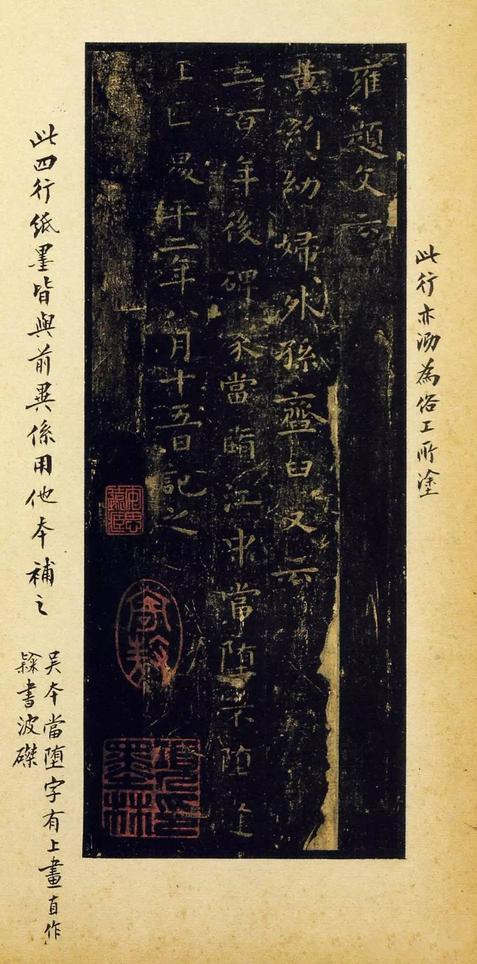 此行亦泐為俗工所塗
雍題文云
黃絹幼婦外孫齏臼又云
三百年後碑冢當墮江中當墮不墮逢
王叵昇平二年八月十五日記之
此四行紙墨皆與前異係用他本補之
吳本當墮字有上畫直作
隸書波磔